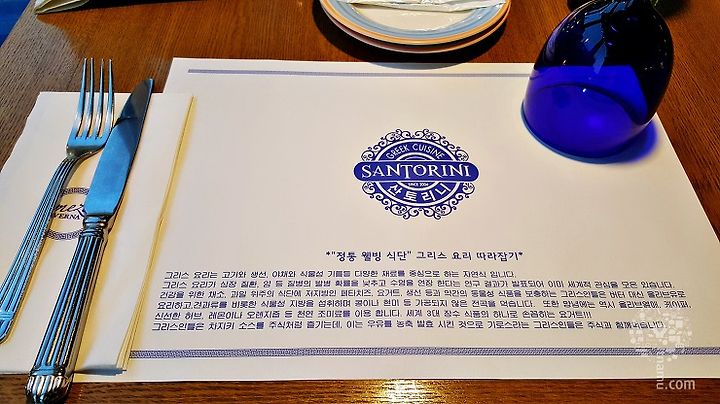 GREEK CUISINE
SANTORINI
SINCE 2004
산토리니
TAVERNA
*"정통 웰빙 식단" 그리스 요리 따라잡기*
그리스 요리는 고기와 생선, 야채와 식물성 기름등 다양한 재료를 중심으로 하는 자연식 입니다.
그리스 요리가 심장 질환, 암 등 질병의 발병 확률을 낮추고 수명을 연장 한다는 연구 결과가 발표되어 이미 세계적 관심을 모은 있습니다.
건강을 위한 채소, 과일 위주의 식단에 저지방인 페타치즈, 요거트, 생선 등과 약간의 동물성 식품을 보충하는 그리스인들은 버터 대신 올리브유로
요리하고,견과류를 비롯한 식물성 지방을 섭취하며 콩이나 현미 등 가공되지 않은 전곡을 먹습니다. 또한 양념에는 역시 올리브열매, 케이퍼,
신선한 허브, 레몬이나 오렌지즙 등 천연 조미료를 이용 합니다. 세계 3대 장수 식품의 하나로 손꼽히는 요거트!!!
그리스인들은 차지키 소스를 주식처럼 즐기는데, 이는 우유를 농축 발효 시킨 것으로 기로스라는 그리스인들은 주식과 함께
.com